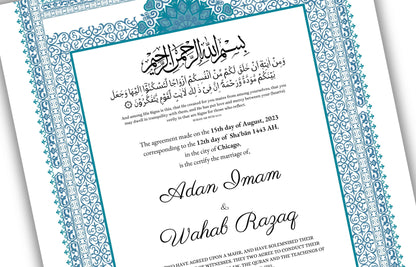 بِسْمِ اللهِ الرَّحْمٰنِ الرَّحِيْمِ
وَمِنْ آيَاتِهِ أَنْ خَلَقَ لَكُمْ مِنْ أَنْفُسِكُمْ أَزْوَاجًا لِتَسْكُنُوا إِلَيْهَا وَجَعَلَ
بَيْنَكُمْ مَوَدَّةً وَرَحْمَةً إِنَّ فِي ذَلِكَ لَآيَاتٍ لِقَوْمٍ يَتَفَكَّرُونَ
And among His Signs is this, that He created for you mates from among yourselves, that you
may dwell in tranquility with them, and He has put love and mercy between your (hearts):
verily in that are Signs for those who reflect.
The agreement made on the 15th day of August, 2023
corresponding to the 12th day of Sha'bān 1443 AH.
in the city of Chicago,
is the certify the marriage of,
Adan Imam
&
Wahab Razaq
HAVE AGREED UPON A MAHR, AND HAVE SOLEMNISED THEIR
WITNESSES. THEY TWO AGREE TO CONDUCT THEIR
THE QURAN AND THE TEACHINGS OF